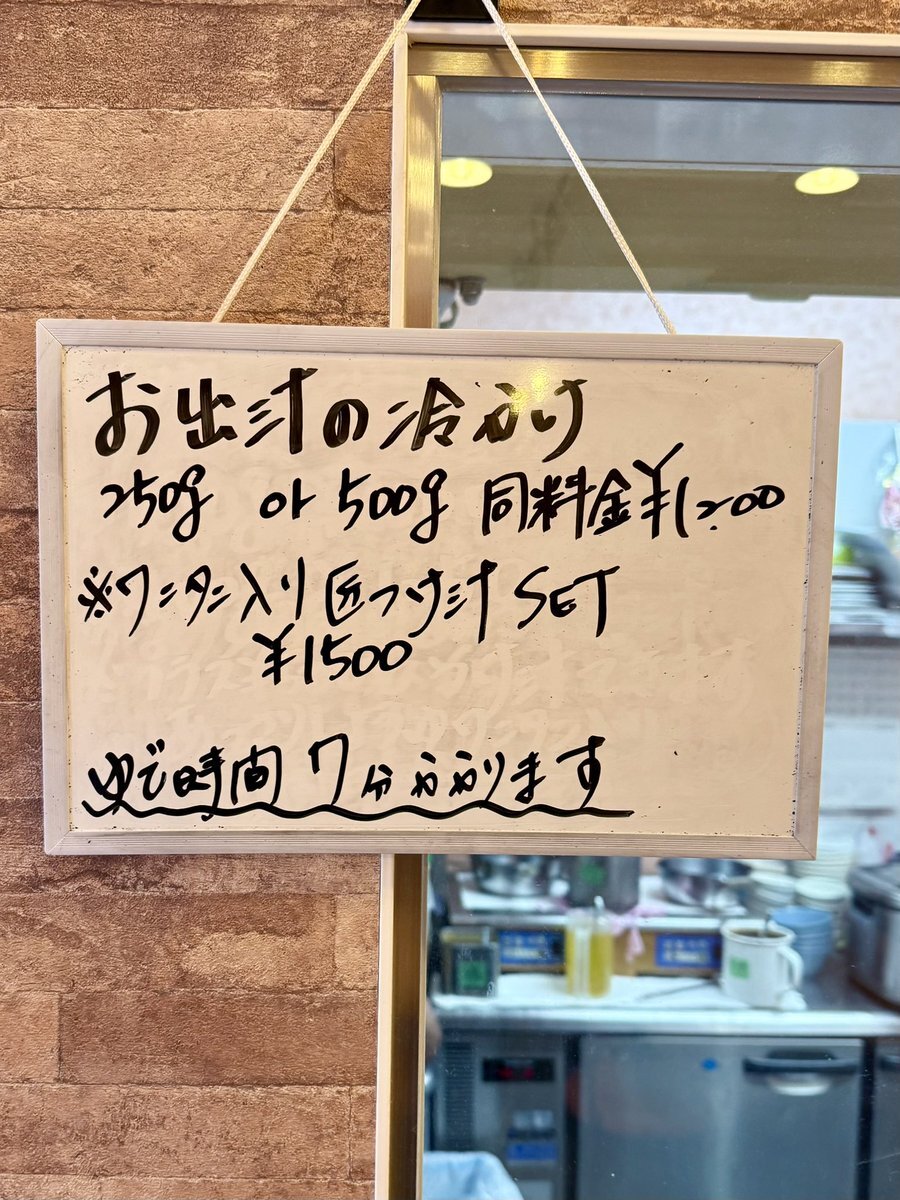 お出汁の冷かけ
250g or 500g 同料金¥1200
※ワンタン入り匠つけ汁SET
¥1500
ゆで時間 7分かかります